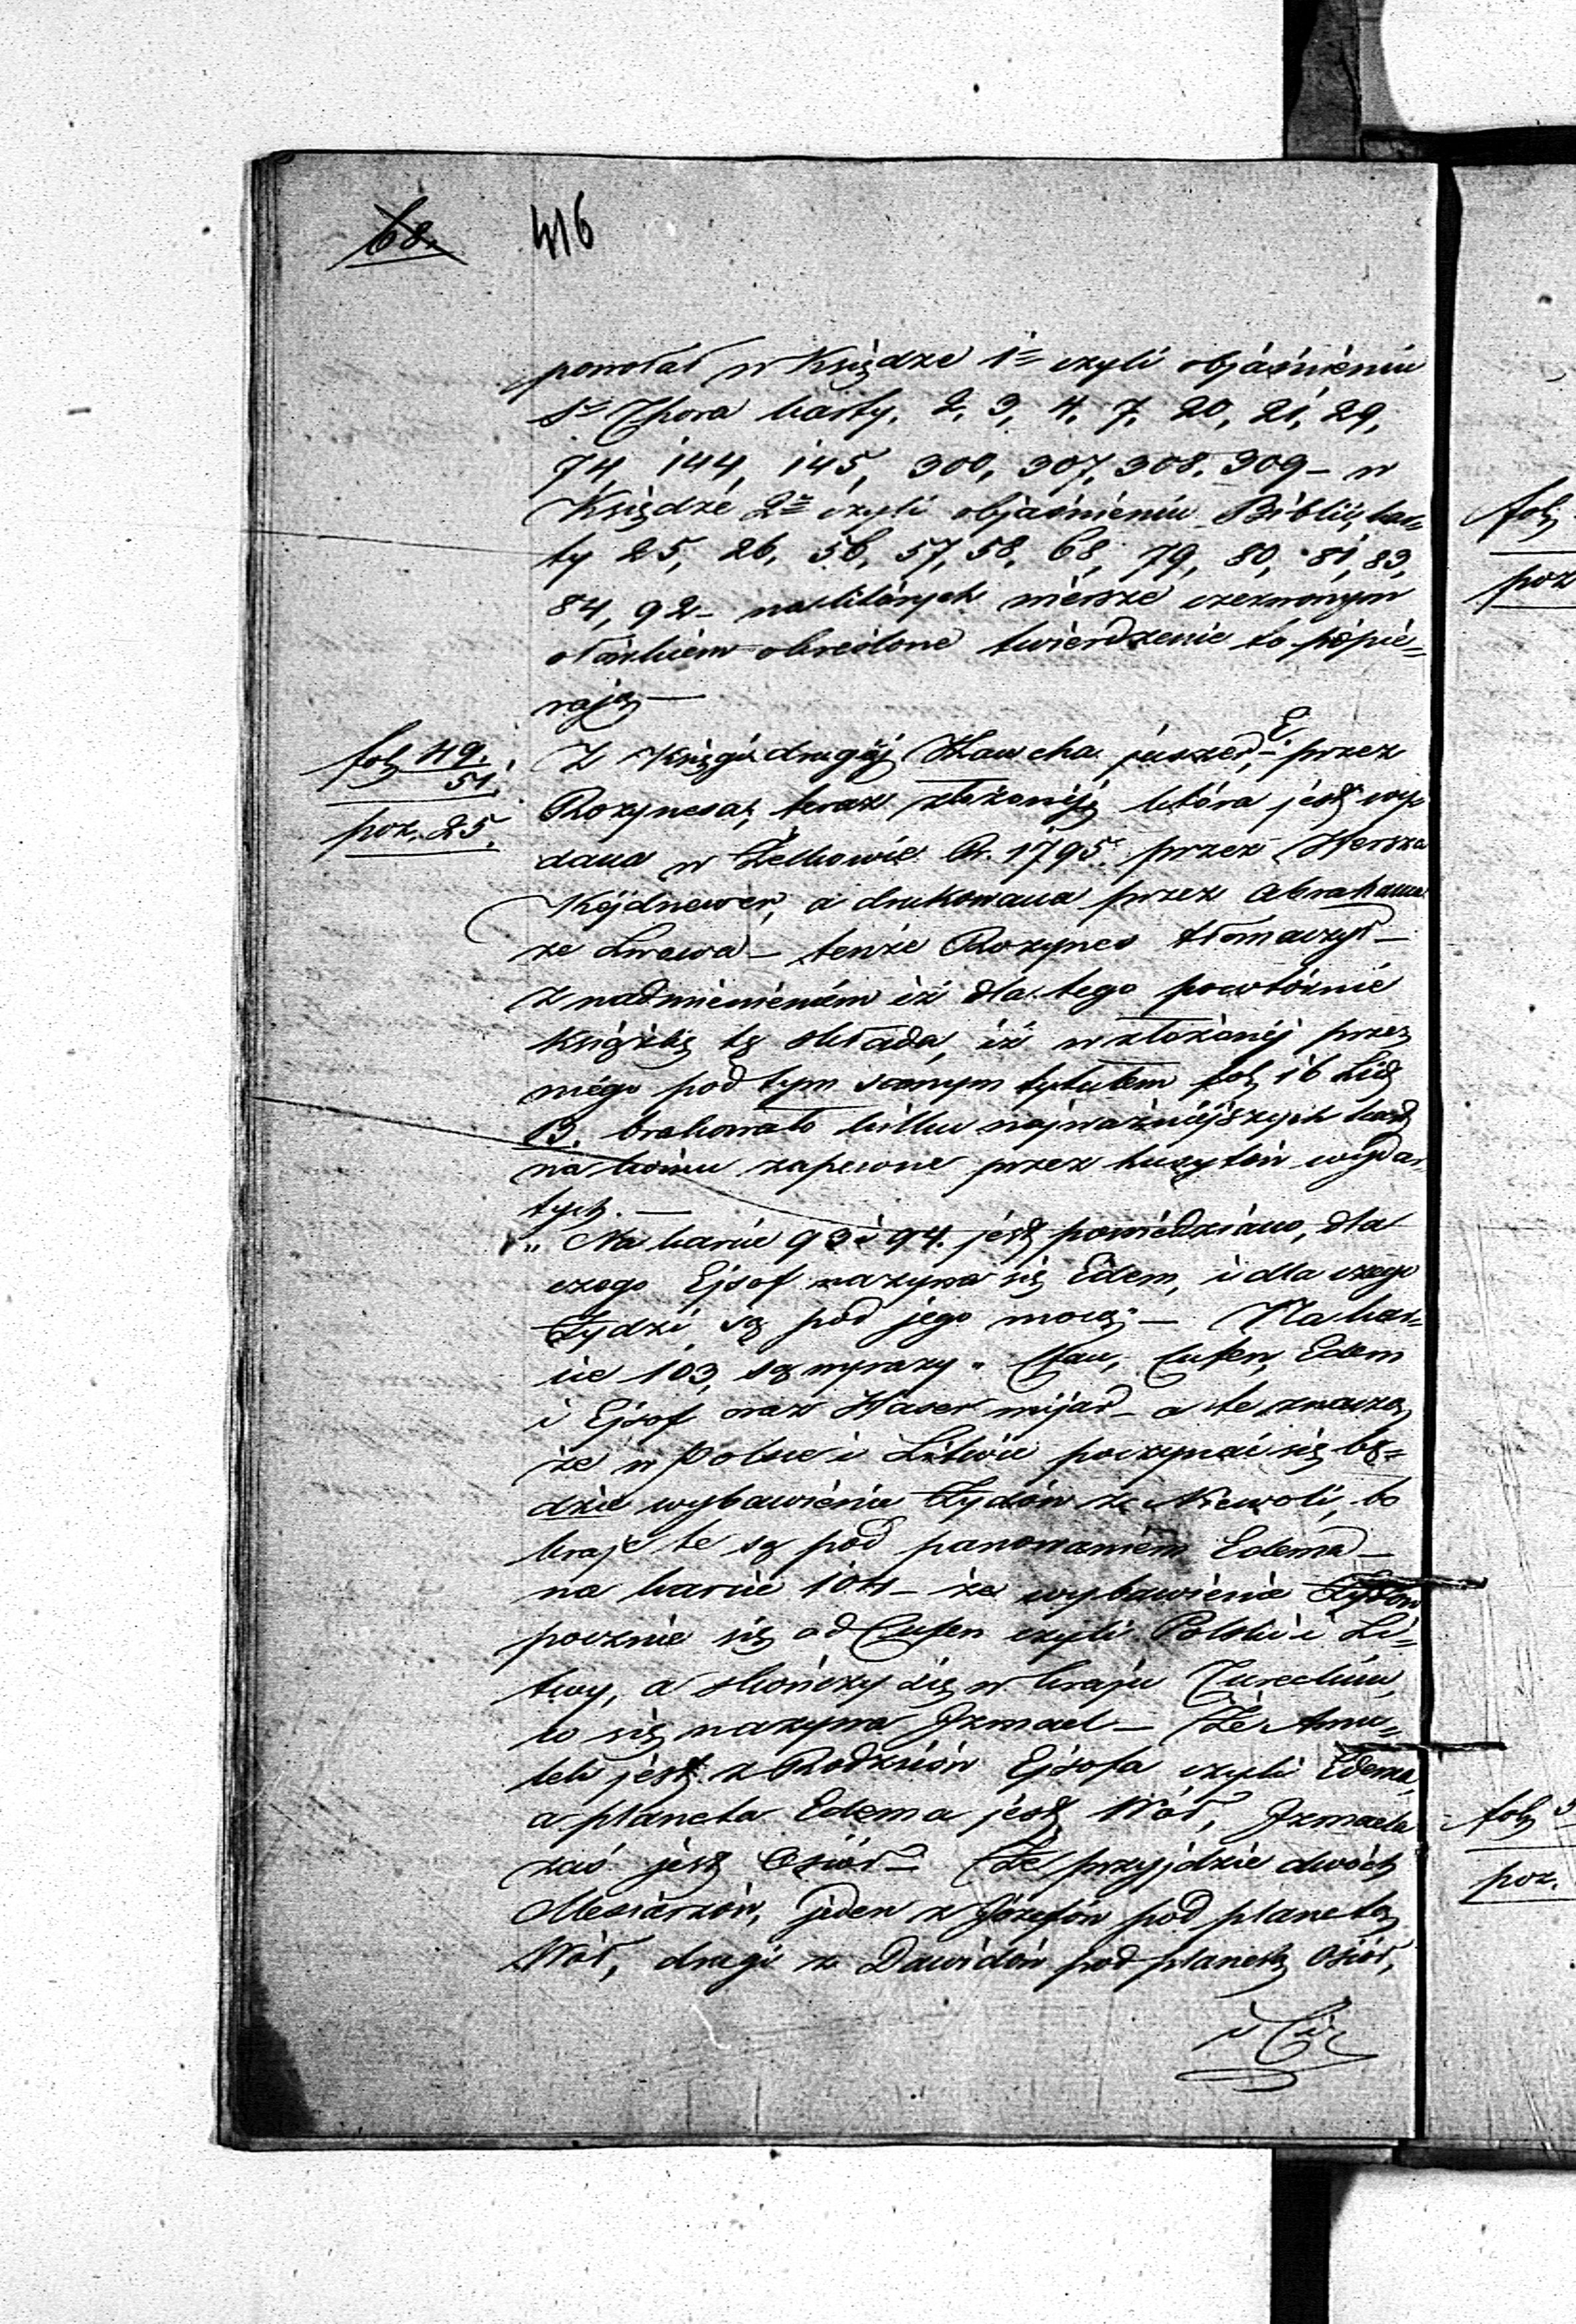 68.
416
powołał w Księdze 1ej czyli objaśnieniu
Sr Thora karty, 2, 3, 4, 7, 20, 21, 29,
74, 144, 145, 300, 307, 308, 309 – w
Księdze 2ej czyli objaśnieniu Biblii, kar=
ty 25, 26, 56, 57, 58, 68, 79, 80, 81, 83,
84, 92 – na których miejsce czerwonym
ołówkiem określone twierdzenie to popie=
rają –
fol 49.
51.
poz. 25.
Z Księgi drugiej Kaw cha juszer, E, – przez
Rozynesa, teraz złożonéj, która jest wy=
dana w Żełkowie R. 1795. przez Hersza
Kojdnower, a drukowana przez Abrahama
ze Lwowa – tenże Rozynes tłomaczył –
z nadmienieniem iż dla tego powtórnie
książkę tę składa, iż w złożonéj przez
niego pod tym samym tytułem fol 16 Lit
B. brakowało kilku najważniejszych kart
na końcu zapewne przez huzytów wyda=
tych. –
" Na karcie 93 i 94. jest powiedziano, dla
czego Ejsof nazywa się Edem, i dla czego
Żydzi są pod jego mocą – Na kar=
cie 103, są wyrazy " Cufen, Edem
i Ejsof oraz Haser mijad – a te znaczą,
że w Polsce i Litwie poczynać się bę=
dzie wybawienie Żydów z Niewoli, bo
kraje te są pod panowaniem Edema –
na karcie 104 – że wybawienie Żydów
pocznie się od Cufen czyli Polski i Li=
twy, a skończy się w kraju Tureckim,
co się nazywa Izmael – Że Ama=
lek jest z Rodziców Ejsofa czyli Edema,
a planeta Edema jest Wół, Izmaela
zaś jest Osioł – Że przyjdzie dwóch
Mesiaszów, jeden z Józefów pod planetą
Wół, drugi z Dawidów pod planetą Osioł,
fol
poz
fol 5
poz.